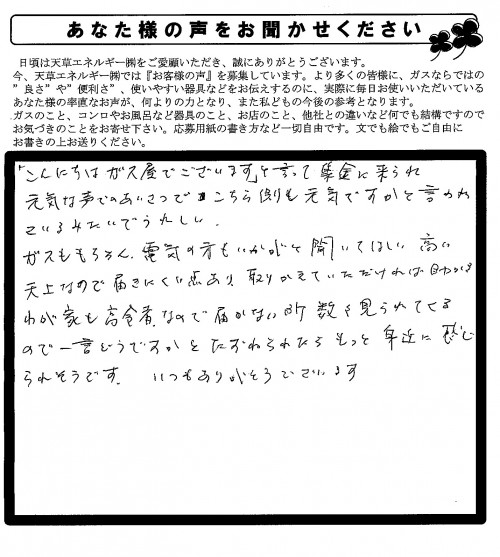 あなた様の声をお聞かせください
日頃は天草エネルギー㈱をご愛顧いただき、誠にありがとうございます。
今、天草エネルギー㈱では『お客様の声』を募集しています。より多くの皆様に、ガスならではの
”良さ”や”便利さ”、使いやすい器具などをお伝えするのに、実際に毎日お使いいただいている
あなた様の率直なお声が、何よりの力となり、また私どもの今後の参考となります。
ガスのこと、コンロやお風呂など器具のこと、お店のこと、他社との違いなど何でも結構ですので
お気づきのことをお寄せ下さい。応募用紙の書き方など一切自由です。文でも絵でもご自由に
お書きの上お送りください。
「こんにちはガス屋でございます」と言って集金に来られ
元気な声でのあいさつで こちら側も元気ですかと言われ
ているみたいでうれしい.
ガスももちろん. 電気の方もいかがと聞いてほしい 高い
天上なので届きにくい点あり 取りかえていただければ助かる
わが家も高令者なので届かない所 数を見られてくる
ので一言どうですかとたずねられたら もっと身近に感じ
られそうです. いつもありがとうございます